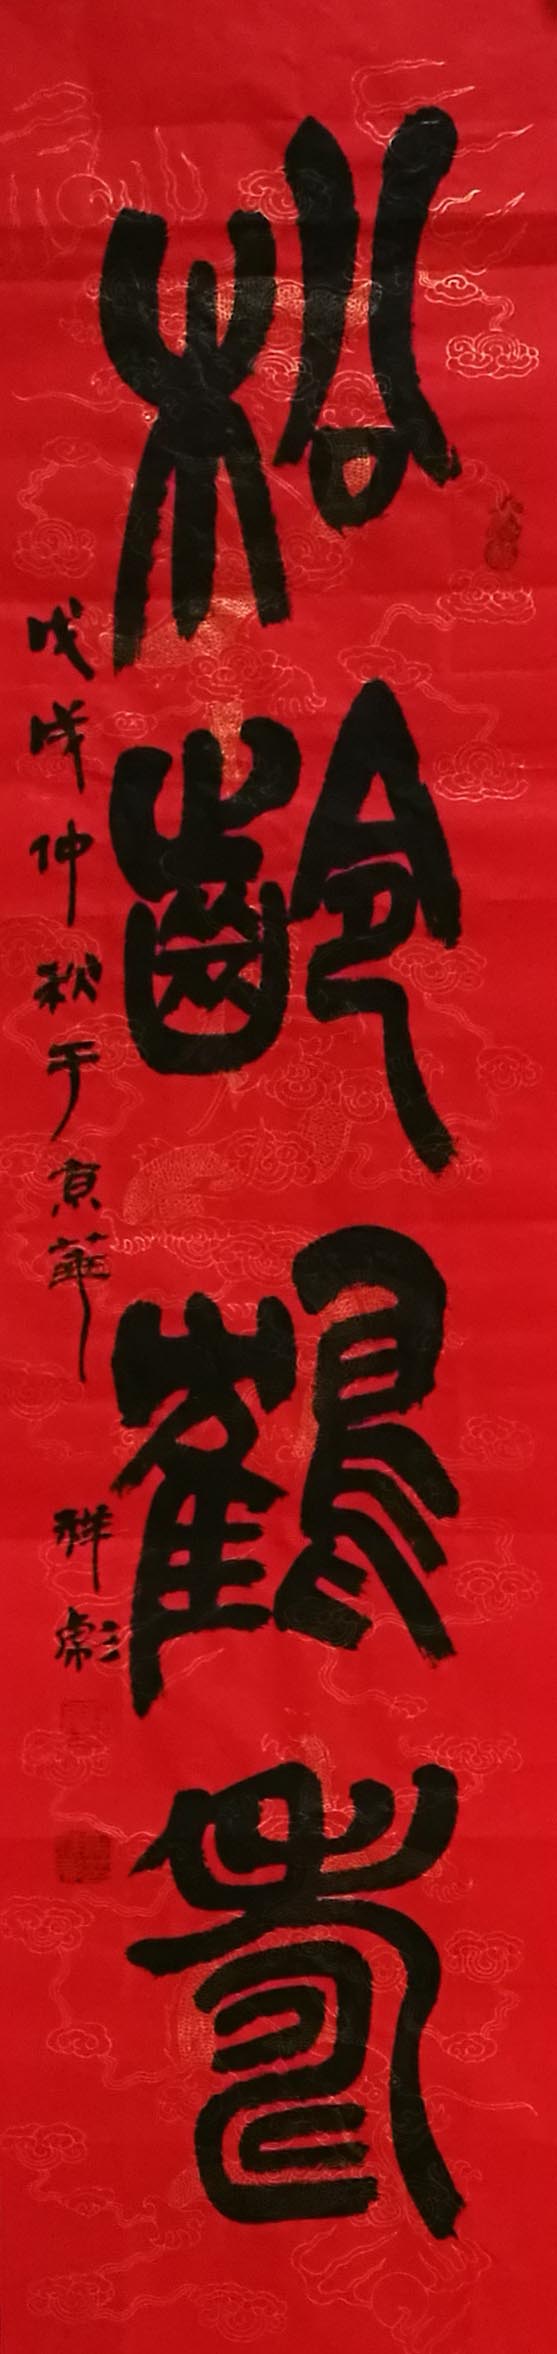 松齡鶴壽
戊戌仲秋于京華
祥彪